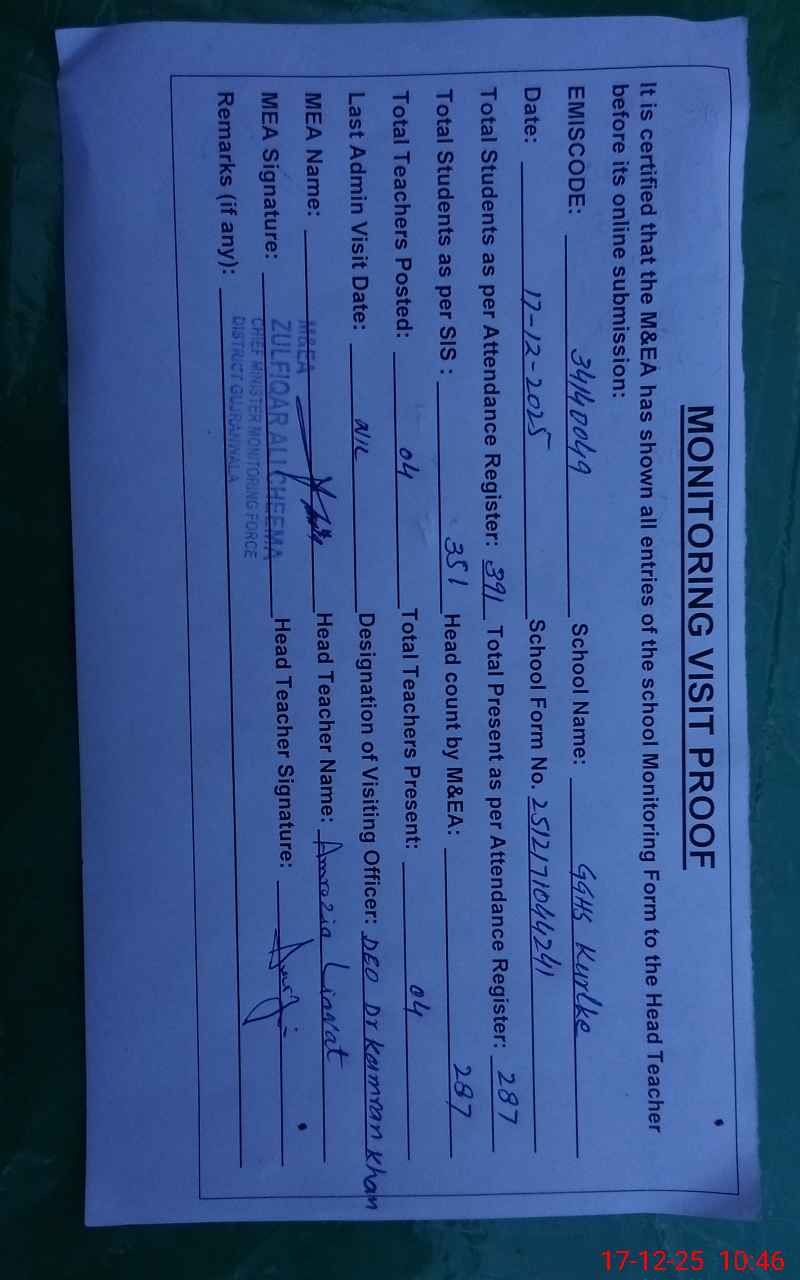 MONITORING VISIT PROOF
It is certified that the M&EA has shown all entries of the school Monitoring Form to the Head Teacher
before its online submission:
EMISCODE: 34140049 School Name: GGHS Kurlke
Date: 17-12-2025 School Form No. 2512171044241
Total Students as per Attendance Register: 391 Total Present as per Attendance Register: 287
Total Students as per SIS : 351 Head count by M&EA: 287
Total Teachers Posted: 04 Total Teachers Present: 04
Last Admin Visit Date: NIL Designation of Visiting Officer: DEO Dr Kamran Khan
MEA Name: Head Teacher Name: Amrozia Liaqat
MEA Signature: Head Teacher Signature:
Remarks (if any):
M&EA
ZULFIQAR ALI CHEEMA
CHIEF MINISTER MONITORING FORCE
DISTRICT GUJRANWALA
17-12-25 10:46